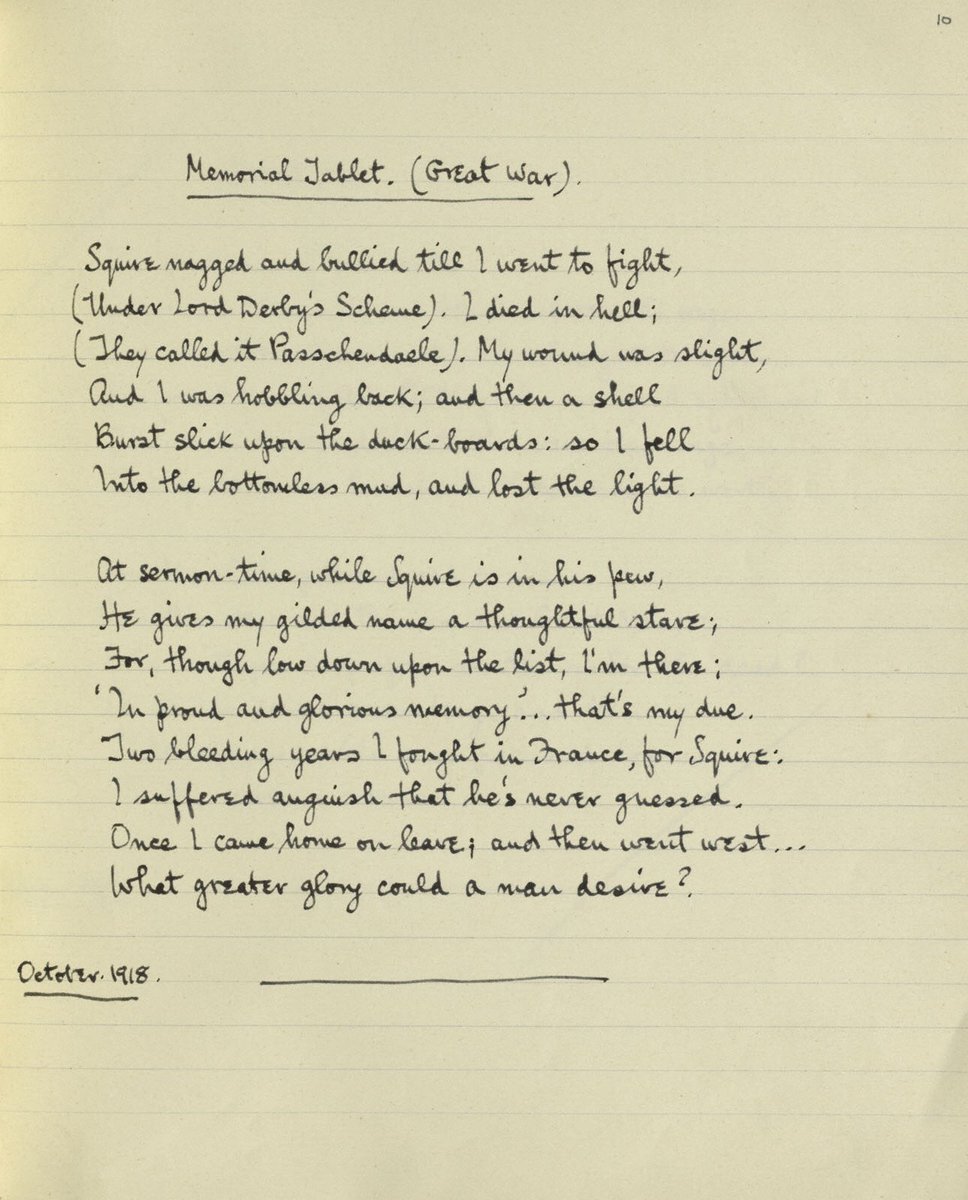 10
Memorial Tablet. (Great War).
Squire nagged and bullied till I went to fight,
(Under Lord Derby's Scheme). I died in hell;
(They called it Passchendaele). My wound was slight,
And I was hobbling back; and then a shell
Burst slick upon the duck-boards: so I fell
Into the bottomless mud, and lost the light.
At sermon-time, while Squire is in his pew,
He gives my gilded name a thoughtful stare;
For, though low down upon the list, I'm there;
'In proud and glorious memory'... that's my due.
Two bleeding years I fought in France, for Squire:
I suffered anguish that he's never guessed.
Once I came home on leave; and then went west...
What greater glory could a man desire?
October. 1918.